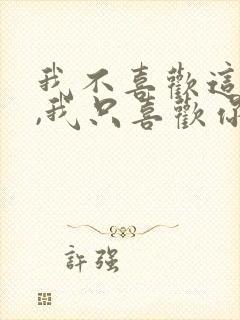 我不喜歡這
,我只喜歡你
許強